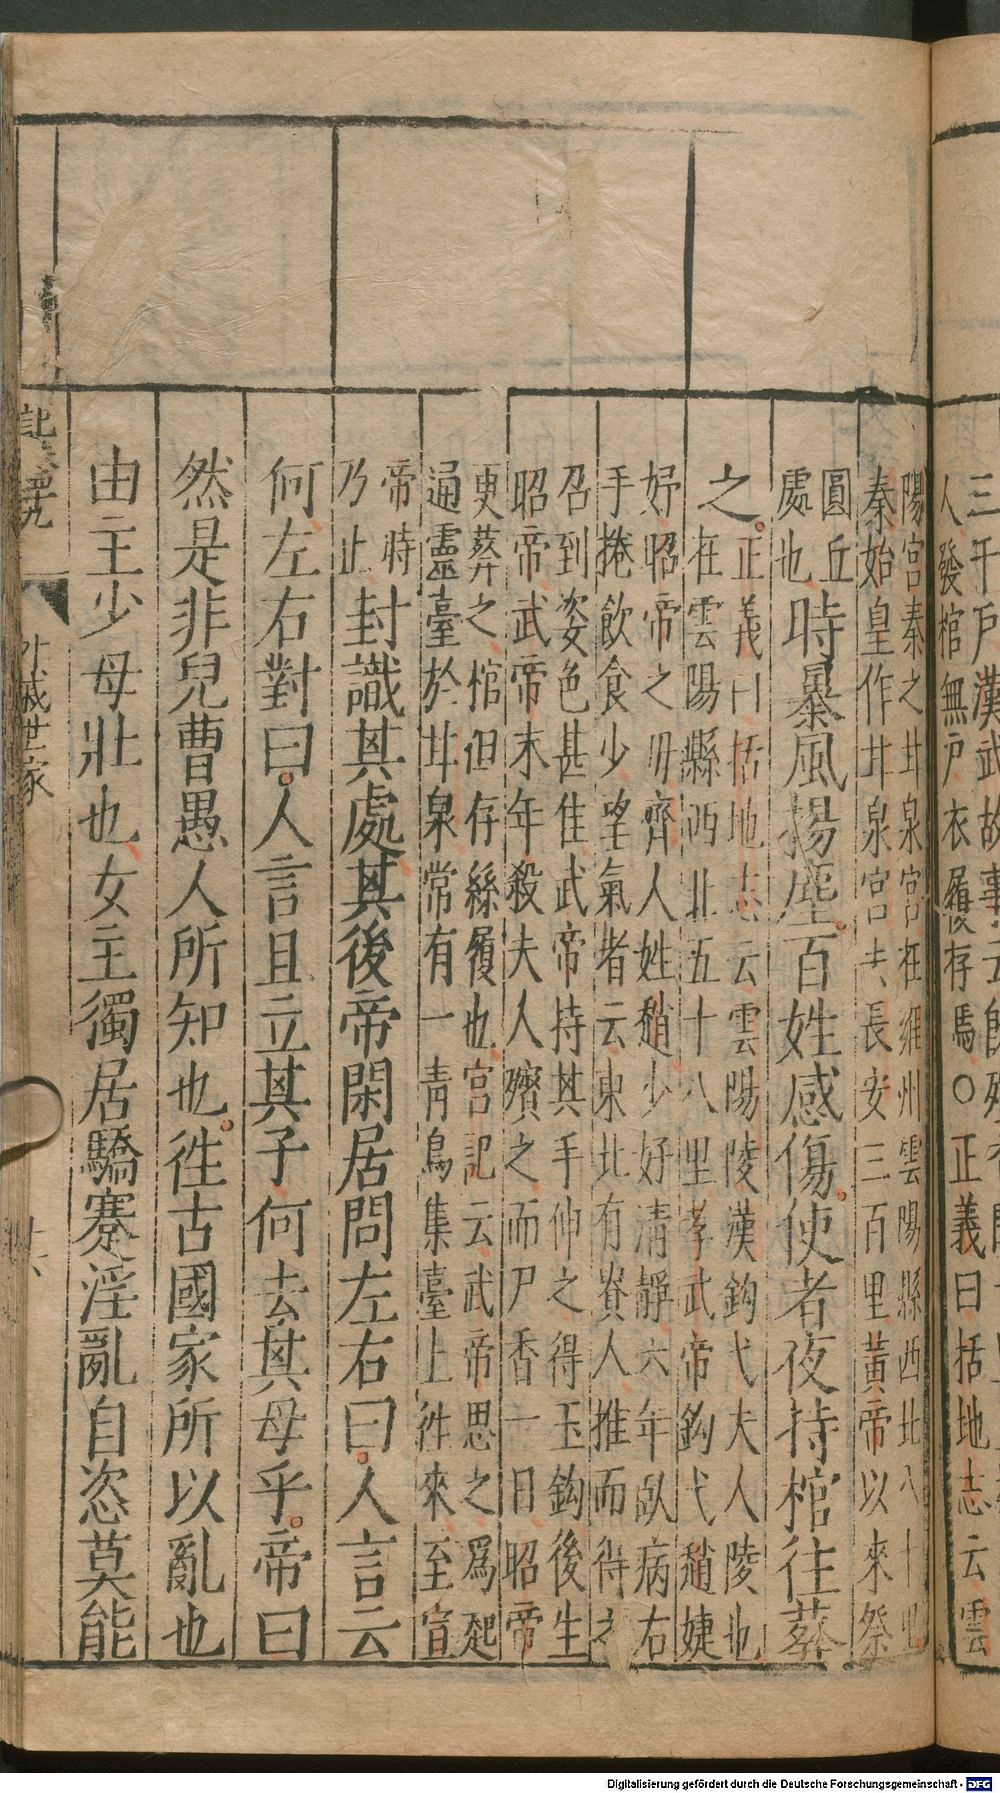 三千戶漢武故事云既殯
人發棺無尸衣履存焉○正義曰括地志云雲
陽宮秦之甘泉宮在雍州雲陽縣西北八十里
秦始皇作甘泉宮去長安三百里黃帝以來祭
圓丘
處也時暴風揚塵百姓感傷使者夜持棺往葬
之正義曰括地志云雲陽陵漢鈎弋夫人陵也
在雲陽縣西北五十八里孝武帝鈎弋趙婕
妤昭帝之母齊人姓趙少好清靜六年臥病右
手捲飲食少望氣者云東北有貴人推而得之
召到姿色甚佳武帝持其手伸之得玉鈎後生
昭帝武帝末年殺夫人殯之而尸香一日昭帝
更葬之棺但存絲履也宮記云武帝思之爲起
通靈臺於甘泉常有一青鳥集臺上往來至宣
帝時
乃止封識其處其後帝閑居問左右曰人言云
何左右對曰人言且立其子何去其母乎帝曰
然是非兒曹愚人所知也往古國家所以亂也
由主少母壯也女主獨居驕蹇淫亂自恣莫能
外戚世家
Digitalisierung gefördert durch die Deutsche Forschungsgemeinschaft - DFG